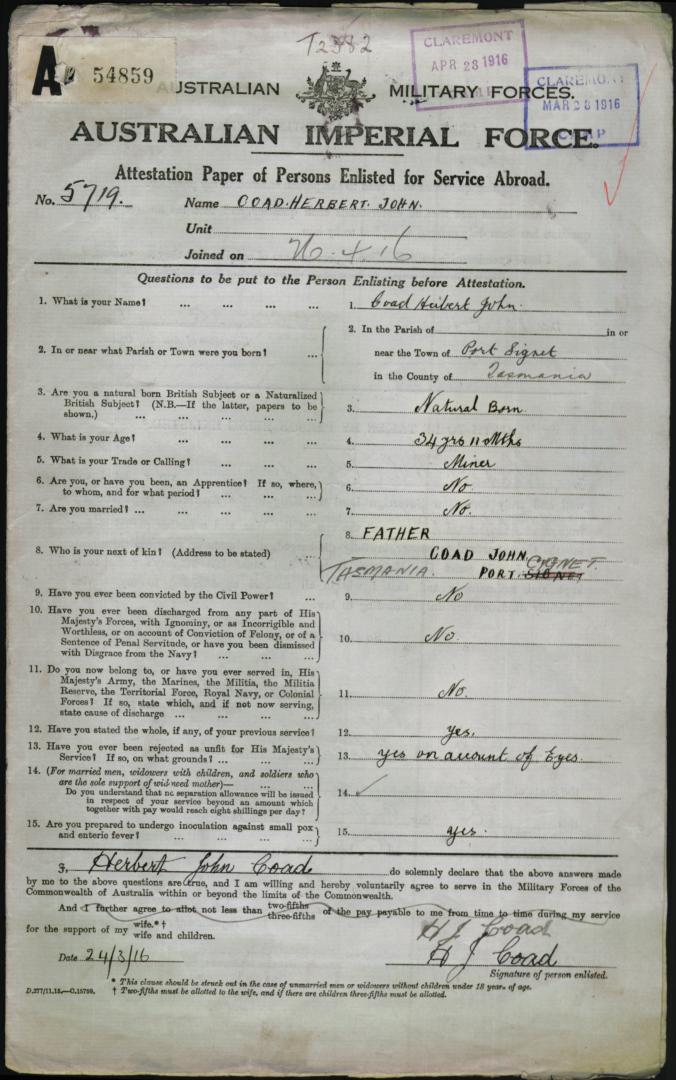 T2382
A 54859
CLAREMONT
APR 28 1916
CLAREMONT
MAR 28 1916
CAMP
AUSTRALIAN MILITARY FORCES.
AUSTRALIAN IMPERIAL FORCE.
Attestation Paper of Persons Enlisted for Service Abroad.
No. 5719. Name COAD. HERBERT. JOHN.
Unit
Joined on 26.4.16
Questions to be put to the Person Enlisting before Attestation.
1. What is your Name? ... ... ... ... 1. Coad Herbert John.
2. In or near what Parish or Town were you born? ... 2. In the Parish of in or
near the Town of Port Signet
in the County of Tasmania
3. Are you a natural born British Subject or a Naturalized
British Subject? (N.B.—If the latter, papers to be
shown.) ... ... ... ... ... 3. Natural Born
4. What is your Age? ... ... ... ... 4. 34 yrs 11 Mths
5. What is your Trade or Calling? ... ... ... 5. Miner
6. Are you, or have you been, an Apprentice? If so, where,
to whom, and for what period? ... ... ... 6. No
7. Are you married? ... ... ... ... ... 7. No.
8. Who is your next of kin? (Address to be stated) ... 8. FATHER
COAD JOHN
TASMANIA. PORT SIGNET CYGNET.
9. Have you ever been convicted by the Civil Power? ... 9. No
10. Have you ever been discharged from any part of His
Majesty's Forces, with Ignominy, or as Incorrigible and
Worthless, or on account of Conviction of Felony, or of a
Sentence of Penal Servitude, or have you been dismissed
with Disgrace from the Navy? ... ... ... 10. No.
11. Do you now belong to, or have you ever served in, His
Majesty's Army, the Marines, the Militia, the Militia
Reserve, the Territorial Force, Royal Navy, or Colonial
Forces? If so, state which, and if not now serving,
state cause of discharge ... ... ... ... 11. No.
12. Have you stated the whole, if any, of your previous service? 12. yes.
13. Have you ever been rejected as unfit for His Majesty's
Service? If so, on what grounds? ... ... ... 13. yes on account of Eyes.
14. (For married men, widowers with children, and soldiers who
are the sole support of widowed mother)— ... ...
Do you understand that no separation allowance will be issued
in respect of your service beyond an amount which
together with pay would reach eight shillings per day? 14. ✓
15. Are you prepared to undergo inoculation against small pox
and enteric fever? ... ... ... ... 15. yes.
I, Herbert John Coad do solemnly declare that the above answers made
by me to the above questions are true, and I am willing and hereby voluntarily agree to serve in the Military Forces of the
Commonwealth of Australia within or beyond the limits of the Commonwealth.
And I further agree to allot not less than two-fifths three-fifths of the pay payable to me from time to time during my service
for the support of my wife.*† wife and children.
H J Coad
Date 24/3/16 H J Coad
Signature of person enlisted.
* This clause should be struck out in the case of unmarried men or widowers without children under 18 years of age.
D.277/11.15.—C.15799. † Two-fifths must be allotted to the wife, and if there are children three-fifths must be allotted.